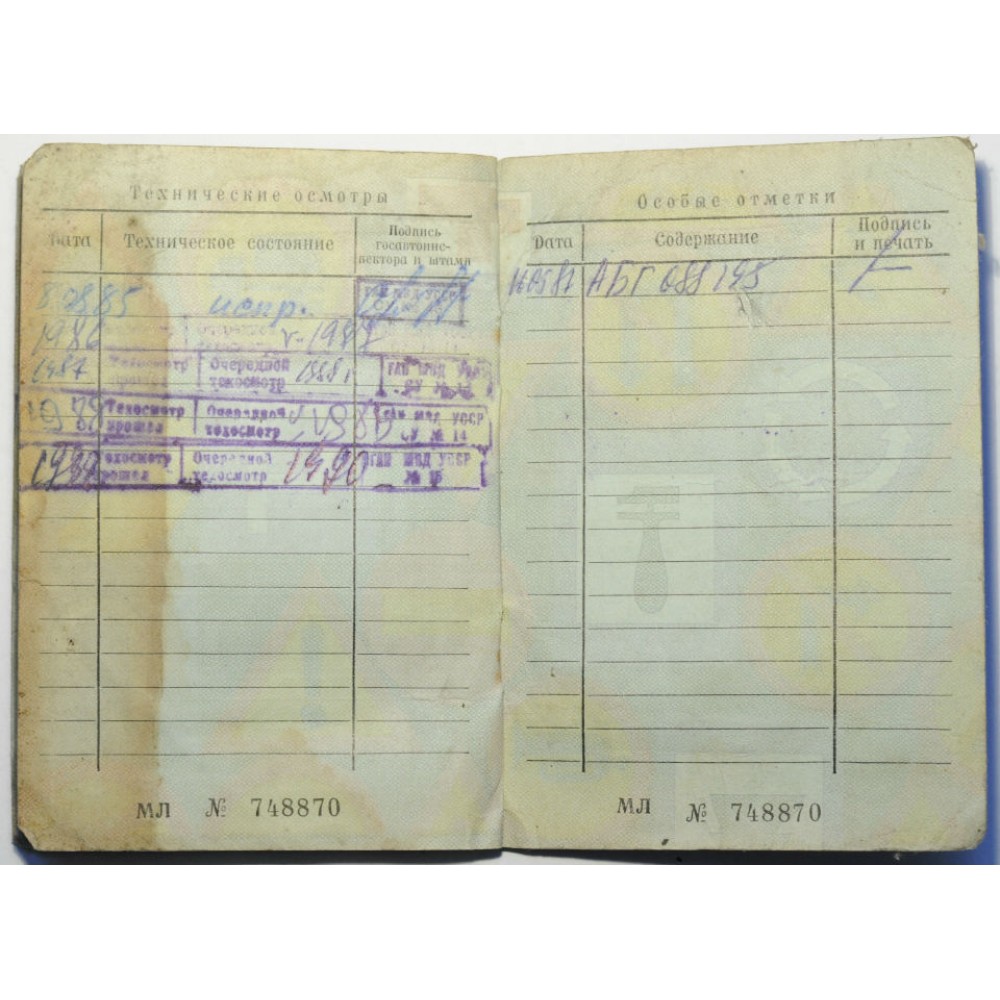 Технические осмотры
Дата Техническое состояние Подпись госавтоинс- пектора и штамп
8.08.85 испр.
1986 г. 1987
1987 Техосмотр прошел Очередной техосмотр 1988 г ГАИ МВД УССР
1988 Техосмотр прошел Очередной техосмотр 1989 ГАИ МВД УССР № 14
1989 Техосмотр прошел Очередной техосмотр 1990 ГАИ МВД УССР
МЛ № 748870
Особые отметки
Дата Содержание Подпись и печать
АБГ 088195
МЛ № 748870